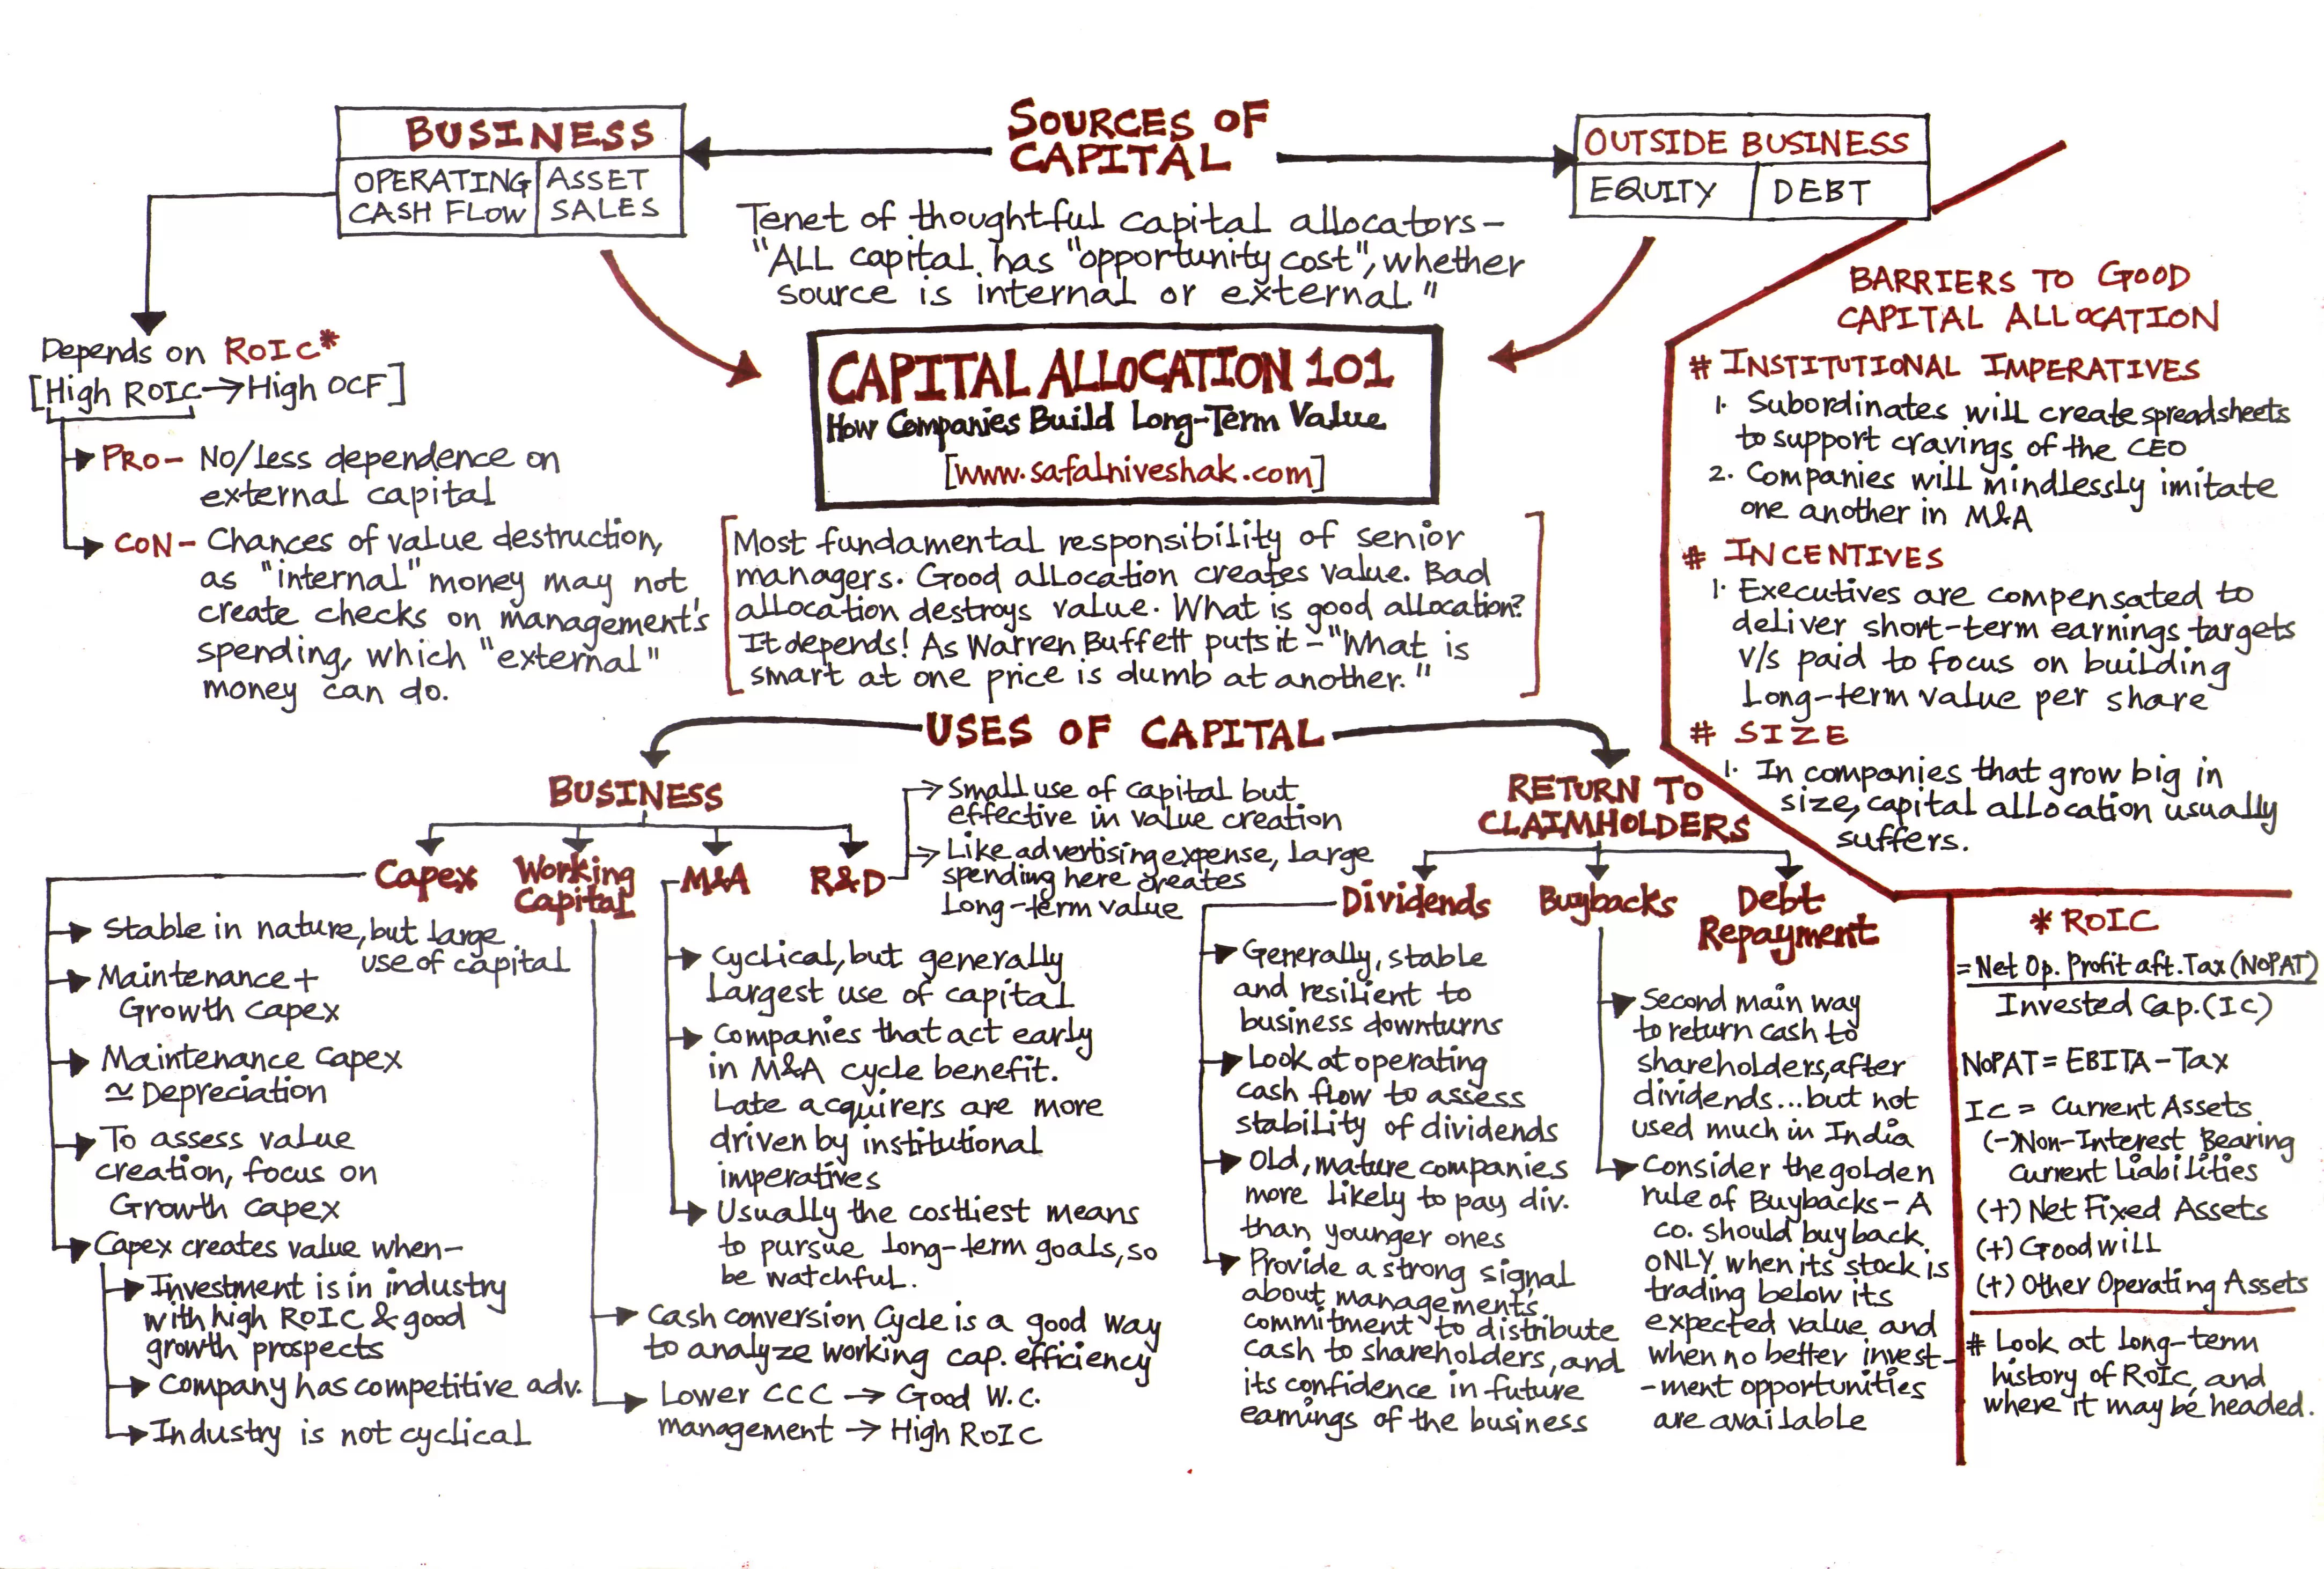 SOURCES OF
CAPITAL
BUSINESS
OPERATING
CASH FLOW
ASSET
SALES
OUTSIDE BUSINESS
EQUITY
DEBT
Tenet of thoughtful capital allocators-
"ALL capital has "opportunity cost", whether
source is internal or external."
Depends on ROIC*
[High ROIC→High OCF]
PRO- No/less dependence on
external capital
CON- Chances of value destruction,
as "internal" money may not
create checks on management's
spending, which "external"
money can do.
CAPITAL ALLOCATION 101
How Companies Build Long-Term Value
[www.safalniveshak.com]
[Most fundamental responsibility of senior
managers. Good allocation creates value. Bad
allocation destroys value. What is good allocation?
It depends! As Warren Buffett puts it-"What is
smart at one price is dumb at another."]
BARRIERS TO GOOD
CAPITAL ALLOCATION
# INSTITUTIONAL IMPERATIVES
1. Subordinates will create spreadsheets
to support cravings of the CEO
2. Companies will mindlessly imitate
one another in M&A
# INCENTIVES
1. Executives are compensated to
deliver short-term earnings targets
v/s paid to focus on building
Long-term value per share
# SIZE
1. In companies that grow big in
size, capital allocation usually
suffers.
USES OF CAPITAL
BUSINESS
Capex
Working
Capital
M&A
R&D
Small use of capital but
effective in value creation
Like advertising expense, large
spending here creates
Long-term value
Stable in nature, but large
use of capital
Maintenance +
Growth Capex
Maintenance Capex
≃ Depreciation
To assess value
creation, focus on
Growth Capex
Capex creates value when-
Investment is in industry
with high ROIC & good
growth prospects
Company has competitive adv.
Industry is not cyclical
Cyclical, but generally
largest use of capital
Companies that act early
in M&A cycle benefit.
Late acquirers are more
driven by institutional
imperatives
Usually the costliest means
to pursue long-term goals, so
be watchful.
Cash conversion Cycle is a good way
to analyze working cap. efficiency
Lower CCC → Good W.C.
management → High ROIC
RETURN TO
CLAIMHOLDERS
Dividends
Buybacks
Debt
Repayment
Generally, stable
and resilient to
business downturns
Look at operating
cash flow to assess
stability of dividends
Old, mature companies
more likely to pay div.
than younger ones
Provide a strong signal
about managements
commitment to distribute
cash to shareholders, and
its confidence in future
earnings of the business
Second main way
to return cash to
shareholders, after
dividends...but not
used much in India
Consider the golden
rule of Buybacks - A
co. should buy back
ONLY when its stock is
trading below its
expected value and
when no better invest-
-ment opportunities
are available
* ROIC
= Net Op. Profit aft. Tax (NOPAT)
Invested Cap. (IC)
NOPAT = EBITA - Tax
IC = Current Assets
(-) Non-Interest Bearing
Current Liabilities
(+) Net Fixed Assets
(+) Goodwill
(+) Other Operating Assets
# Look at long-term
history of ROIC, and
where it may be headed.